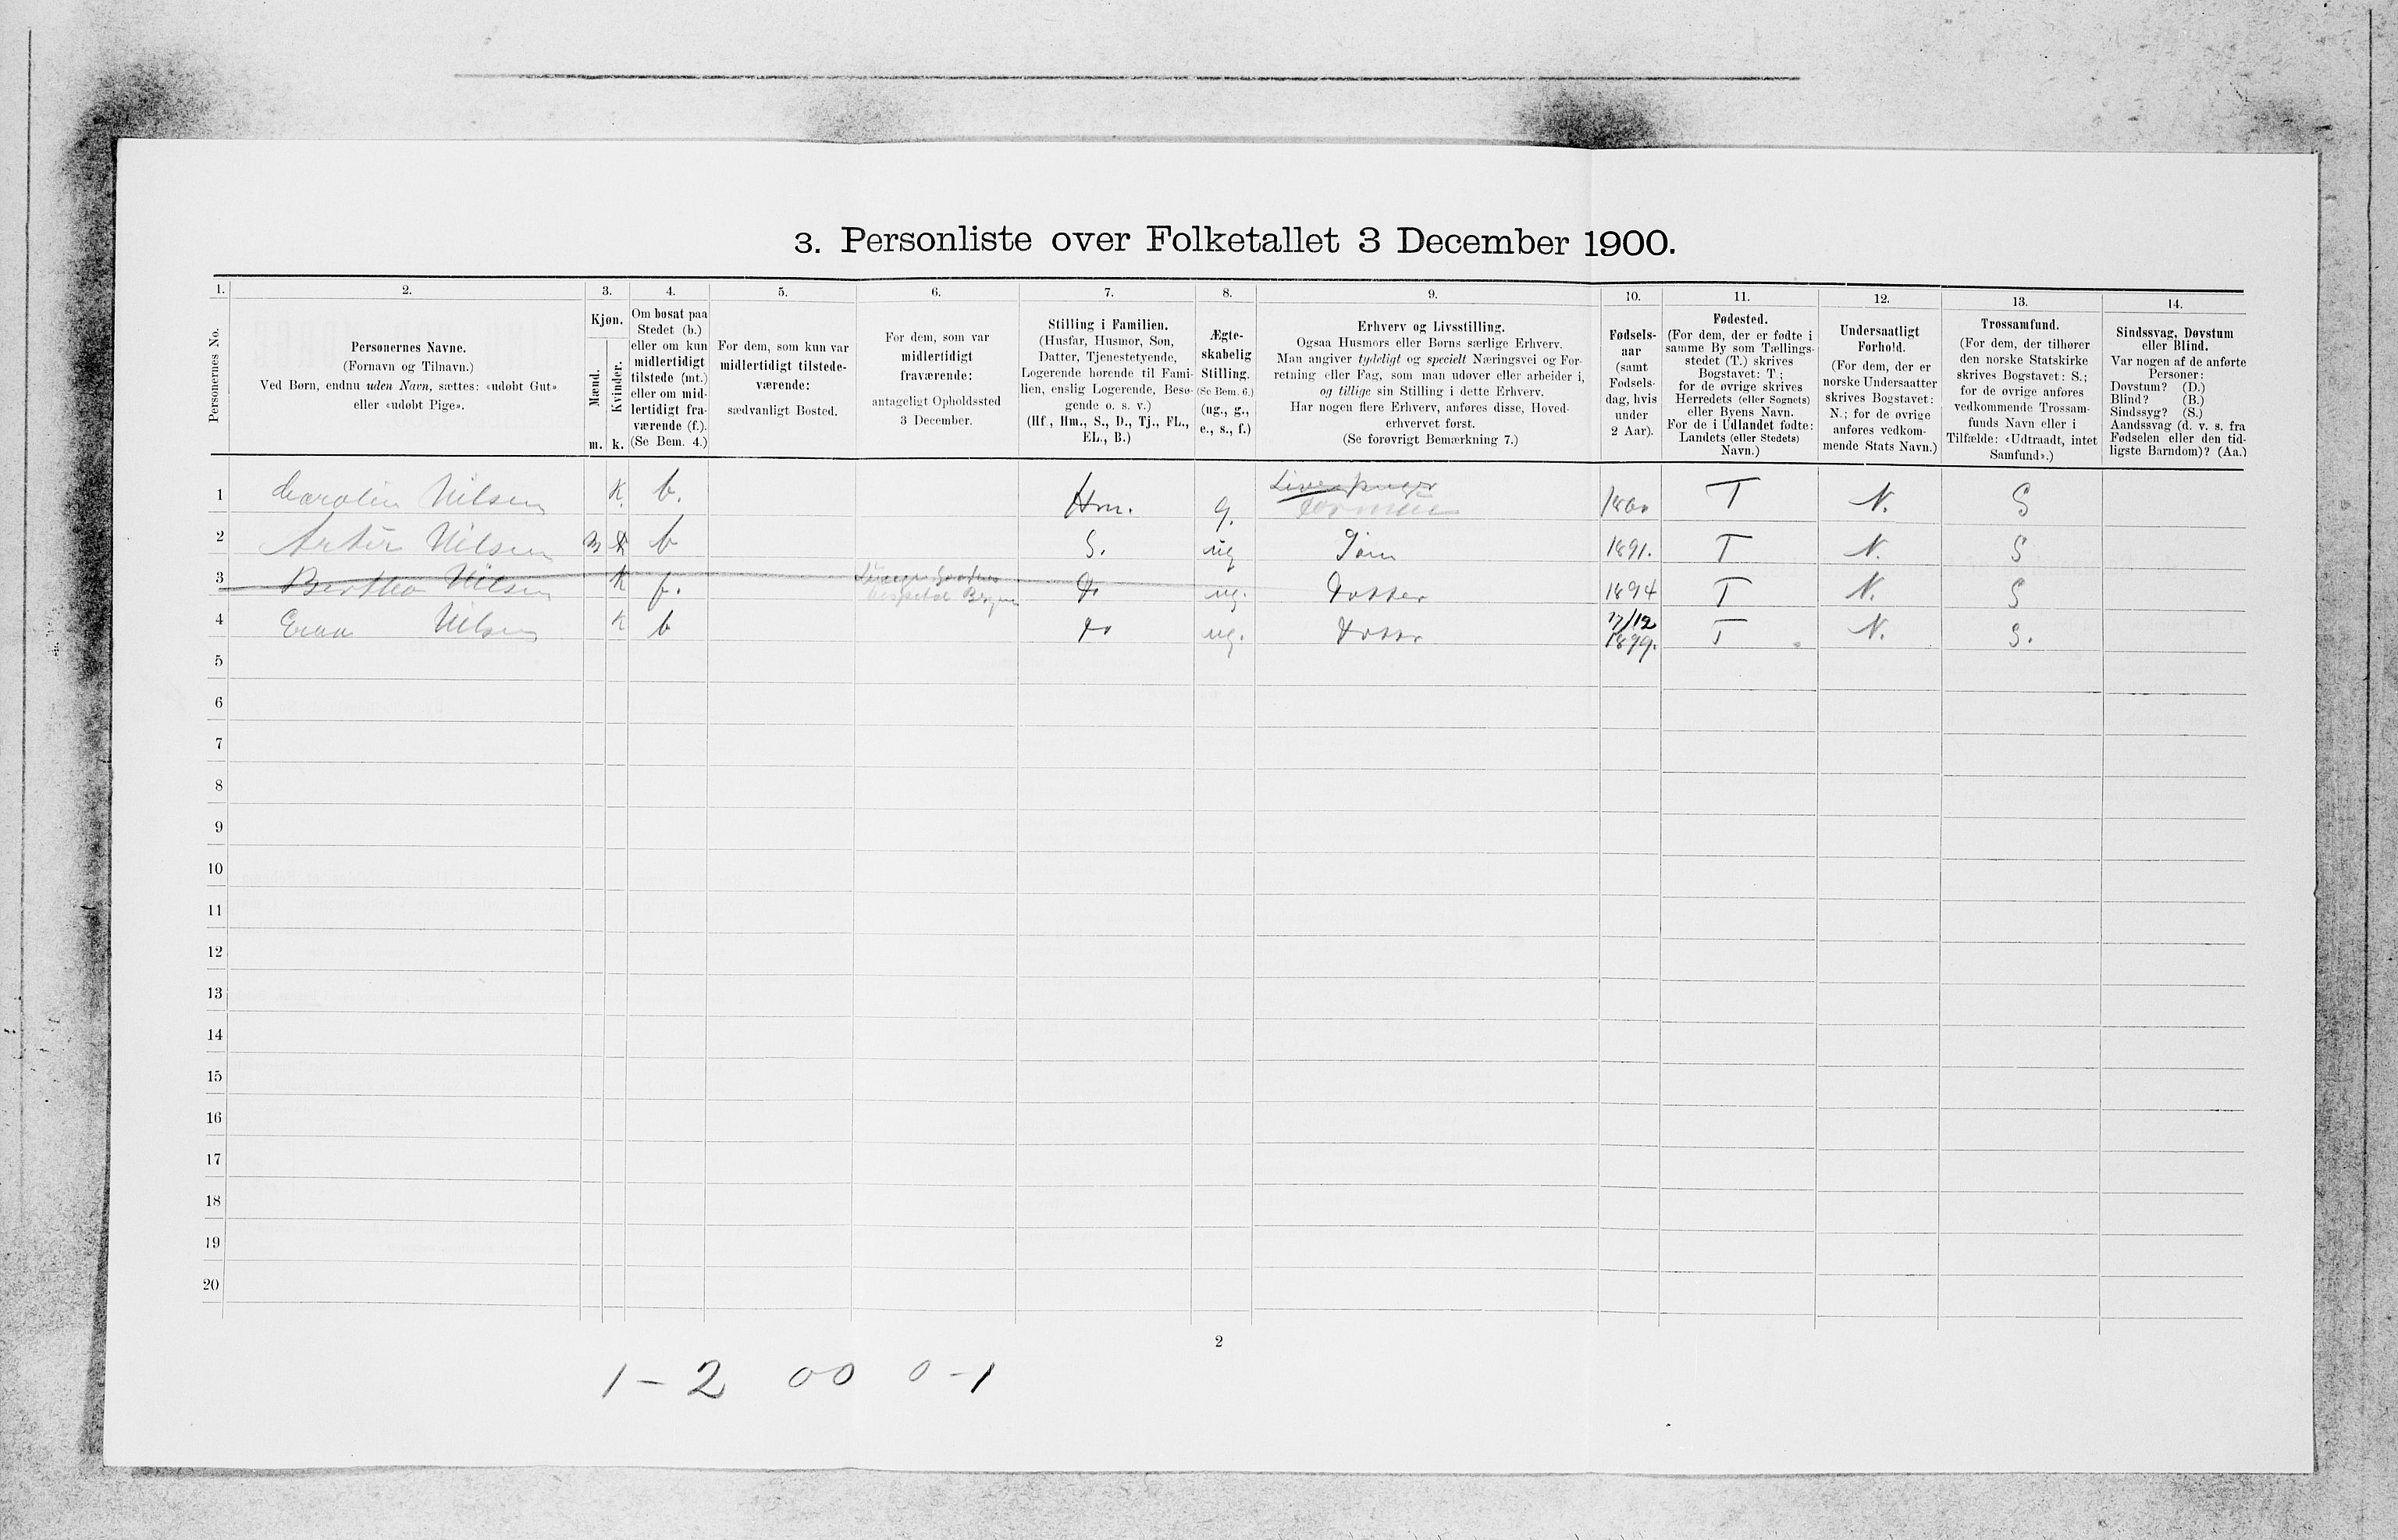 3. Personliste over Folketallet 3 December 1900.
1. 2. 3. 4. 5. 6. 7. 8. 9. 10. 11. 12. 13. 14.
Personernes No.
Personernes Navne.
(Fornavn og Tilnavn.)
Ved Børn, endnu uden Navn, sættes: «udøbt Gut»
eller «udøbt Pige».
Kjøn.
Mænd.
Kvinder.
m. k.
Om bosat paa
Stedet (b.)
eller om kun
midlertidigt
tilstede (mt.)
eller om mid-
lertidigt fra-
værende (f.).
(Se Bem. 4.)
For dem, som kun var
midlertidigt tilstede-
værende:
sædvanligt Bosted.
For dem, som var
midlertidigt
fraværende:
antageligt Opholdssted
3 December.
Stilling i Familien.
(Husfar, Husmor, Søn,
Datter, Tjenestetyende,
Logerende hørende til Fami-
lien, enslig Logerende, Besø-
gende o. s. v.)
(Hf., Hm., S., D., Tj., FL.,
EL., B.)
Ægte-
skabelig
Stilling.
(Se Bem. 6.)
(ug., g.,
e., s., f.)
Erhverv og Livsstilling.
Ogsaa Husmors eller Børns særlige Erhverv.
Man angiver tydeligt og specielt Næringsvei og For-
retning eller Fag, som man udøver eller arbeider i,
og tillige sin Stilling i dette Erhverv.
Har nogen flere Erhverv, anføres disse, Hoved-
erhvervet først.
(Se forøvrigt Bemærkning 7.)
Fødsels-
aar
(samt
Fødsels-
dag, hvis
under
2 Aar).
Fødested.
(For dem, der er fødte i
samme By som Tællings-
stedet (T.) skrives
Bogstavet: T.;
for de øvrige skrives
Herredets (eller Sognets)
eller Byens Navn.
For de i Udlandet fødte:
Landets (eller Stedets)
Navn.)
Undersaatligt
Forhold.
(For dem, der er
norske Undersaatter
skrives Bogstavet:
N.; for de øvrige
anføres vedkom-
mende Stats Navn.)
Trossamfund.
(For dem, der tilhører
den norske Statskirke
skrives Bogstavet: S.;
for de øvrige anføres
vedkommende Trossam-
funds Navn eller i
Tilfælde: «Udtraadt, intet
Samfund».)
Sindssvag, Døvstum
eller Blind.
Var nogen af de anførte
Personer:
Døvstum? (D.)
Blind? (B.)
Sindssyg? (S.)
Aandssvag (d. v. s. fra
Fødselen eller den tid-
ligste Barndom)? (Aa.)
1 Carolin Nilsen K b. Hm. g. T N. S
2 Artür Nilsen M K b S. ug Søn 1891. T N. S
3 Bertha Nilsen K f. D. ug. Datter 1894 T N. S
4 Nilsen K b D ug. Datter 17/12 1899. T N. S.
5
6
7
8
9
10
11
12
13
14
15
16
17
18
19
20
2
1 - 2 00 0 - 1